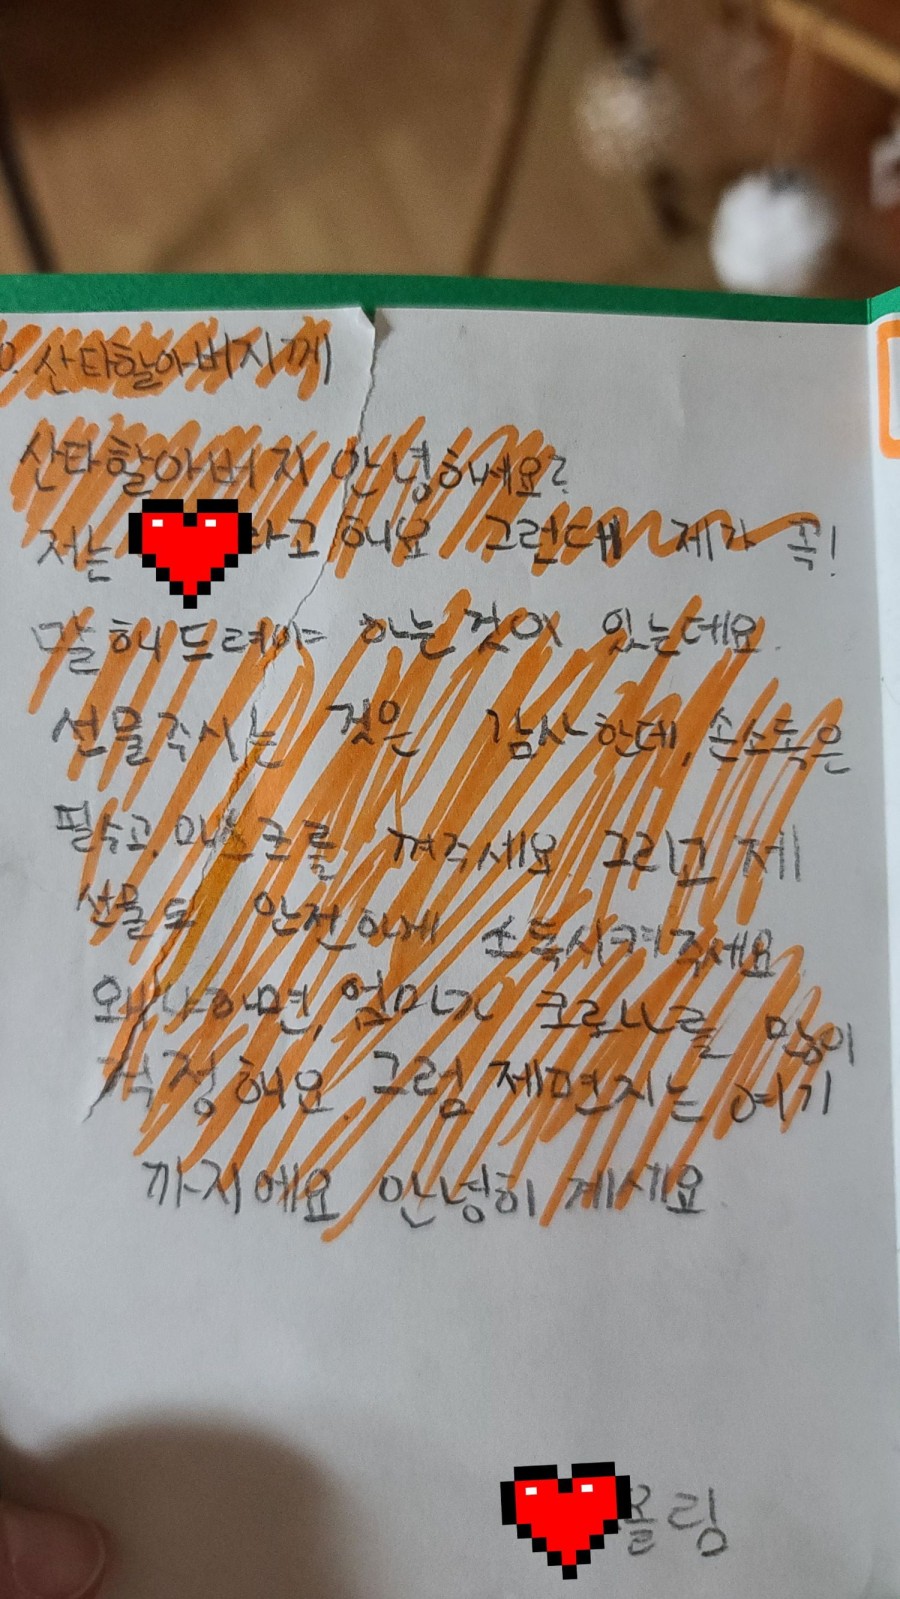 산타할아버지께
산타할아버지 안녕하세요?
저는 라고 해요 그런데 제가 꼭!
말해드려야 하는것이 있는데요.
선물주시는 것은 감사한데, 손소독은
필수고, 마스크를 껴주세요 그리고 제
선물도 안전하게 소독시켜주세요
왜냐하면, 엄마가 코로나를 많이
걱정해요. 그럼 제편지는 여기
까지에요 안녕히 계세요
올림